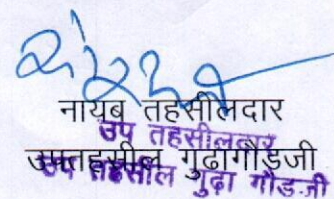 नायब तहसीलदार
उप तहसीलदार
उपतहसील गुढागौडजी
उप तहसील गुढ़ा गौड़-जी